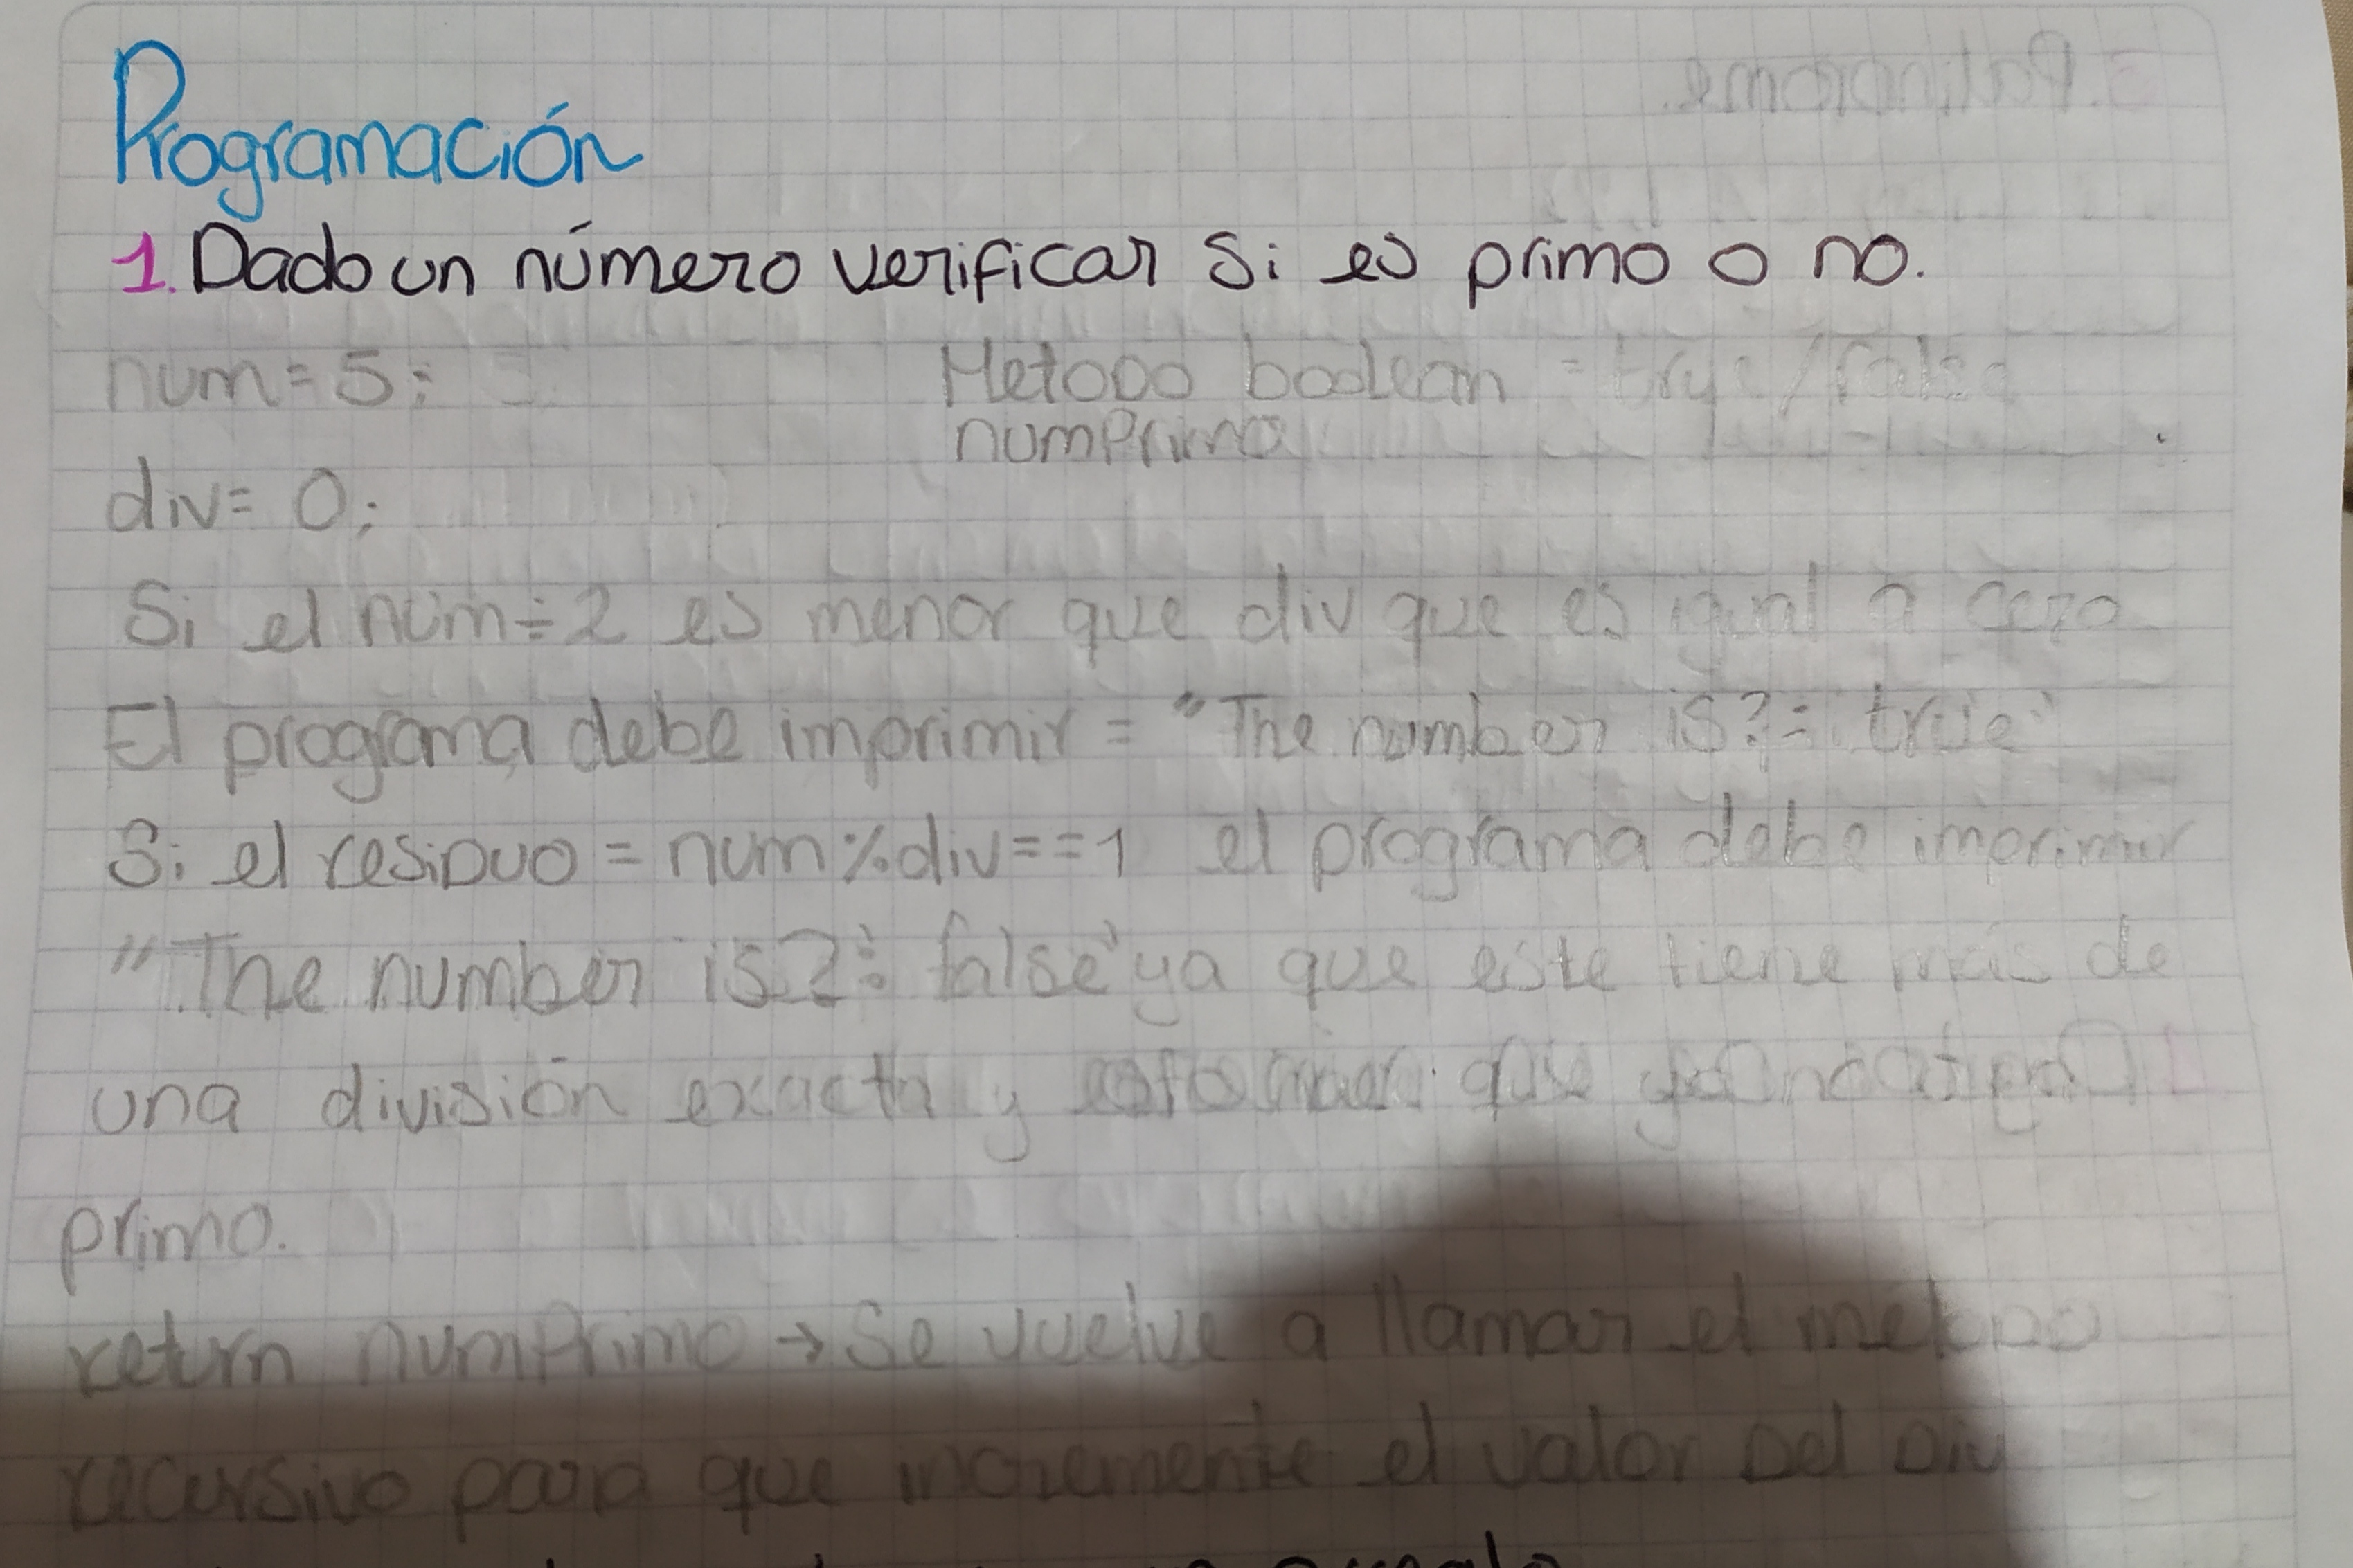 Programación
1. Dado un número verificar si es primo o no.
num = 5;
Metodo boolean = true/false
numPrimo
div = 0;
Si el num ÷ 2 es menor que div que es igual a cero
El programa debe imprimir = "The number is?: true"
Si el residuo = num % div == 1 el programa debe imprimir
"The number is?: false" ya que este tiene más de
una división exacta y que
primo.
return numPrimo → Se vuelve a llamar el metodo
recursivo para que incremente el valor del div